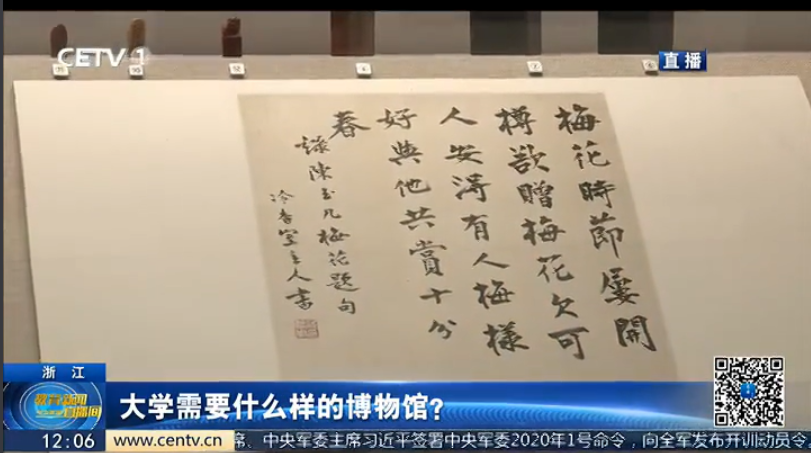 CETV 1
直播
梅花時節屢開
樽欲贈梅花欠可
人安得有人梅樣
好與他共賞十分
春
錄陳玉几梅花題句
冷香室主人書
浙江
教育新闻
直播间
大学需要什么样的博物馆?
12:06
www.centv.cn
席、中央军委主席习近平签署中央军委2020年1号命令，向全军发布开训动员令